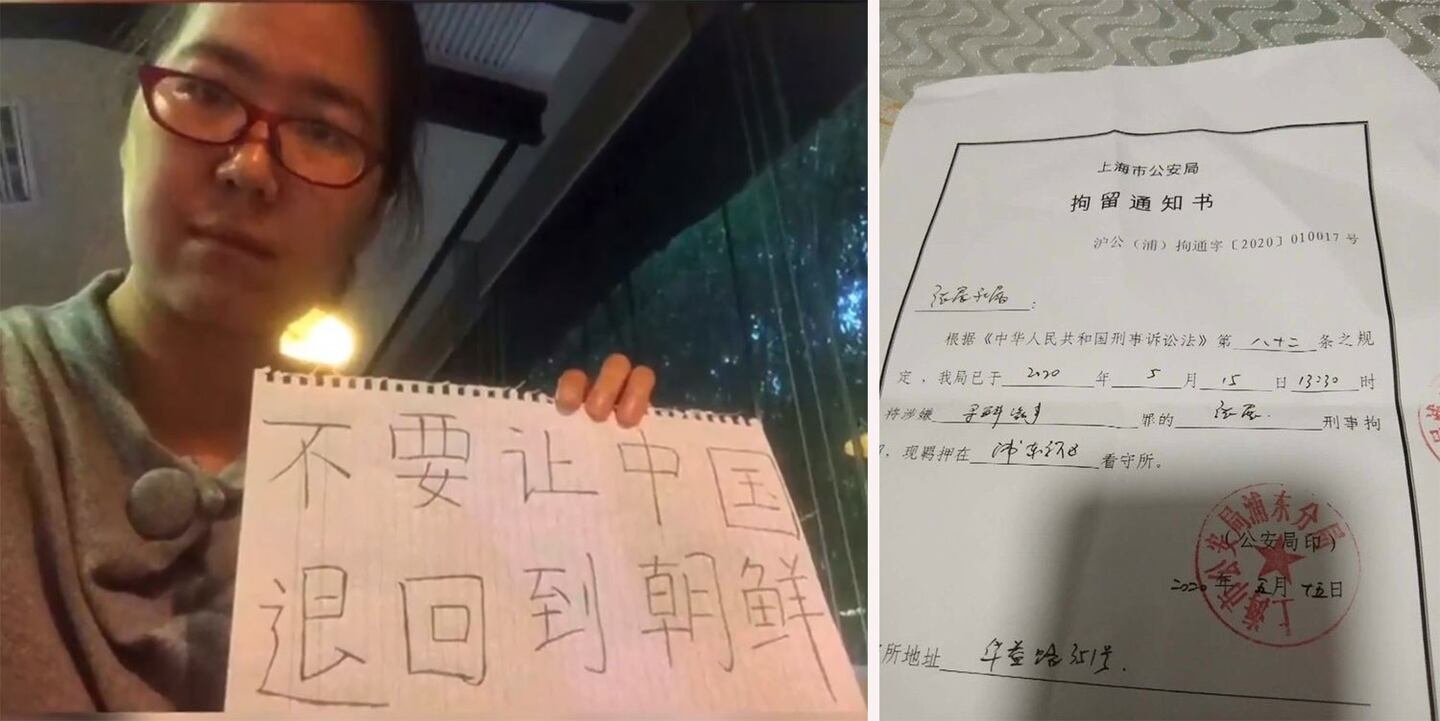 不要让中国
退回到朝鲜
上海市公安局
拘留通知书
沪公（浦）拘通字〔2020〕010017号
张展家属：
根据《中华人民共和国刑事诉讼法》第八十二条之规
定，我局已于2020年5月15日13:30时
将涉嫌寻衅滋事罪的张展刑事拘
，现羁押在浦东新区看守所。
上海市公安局浦东分局
（公安局印）
2020年五月十五日
所地址华益路351号.